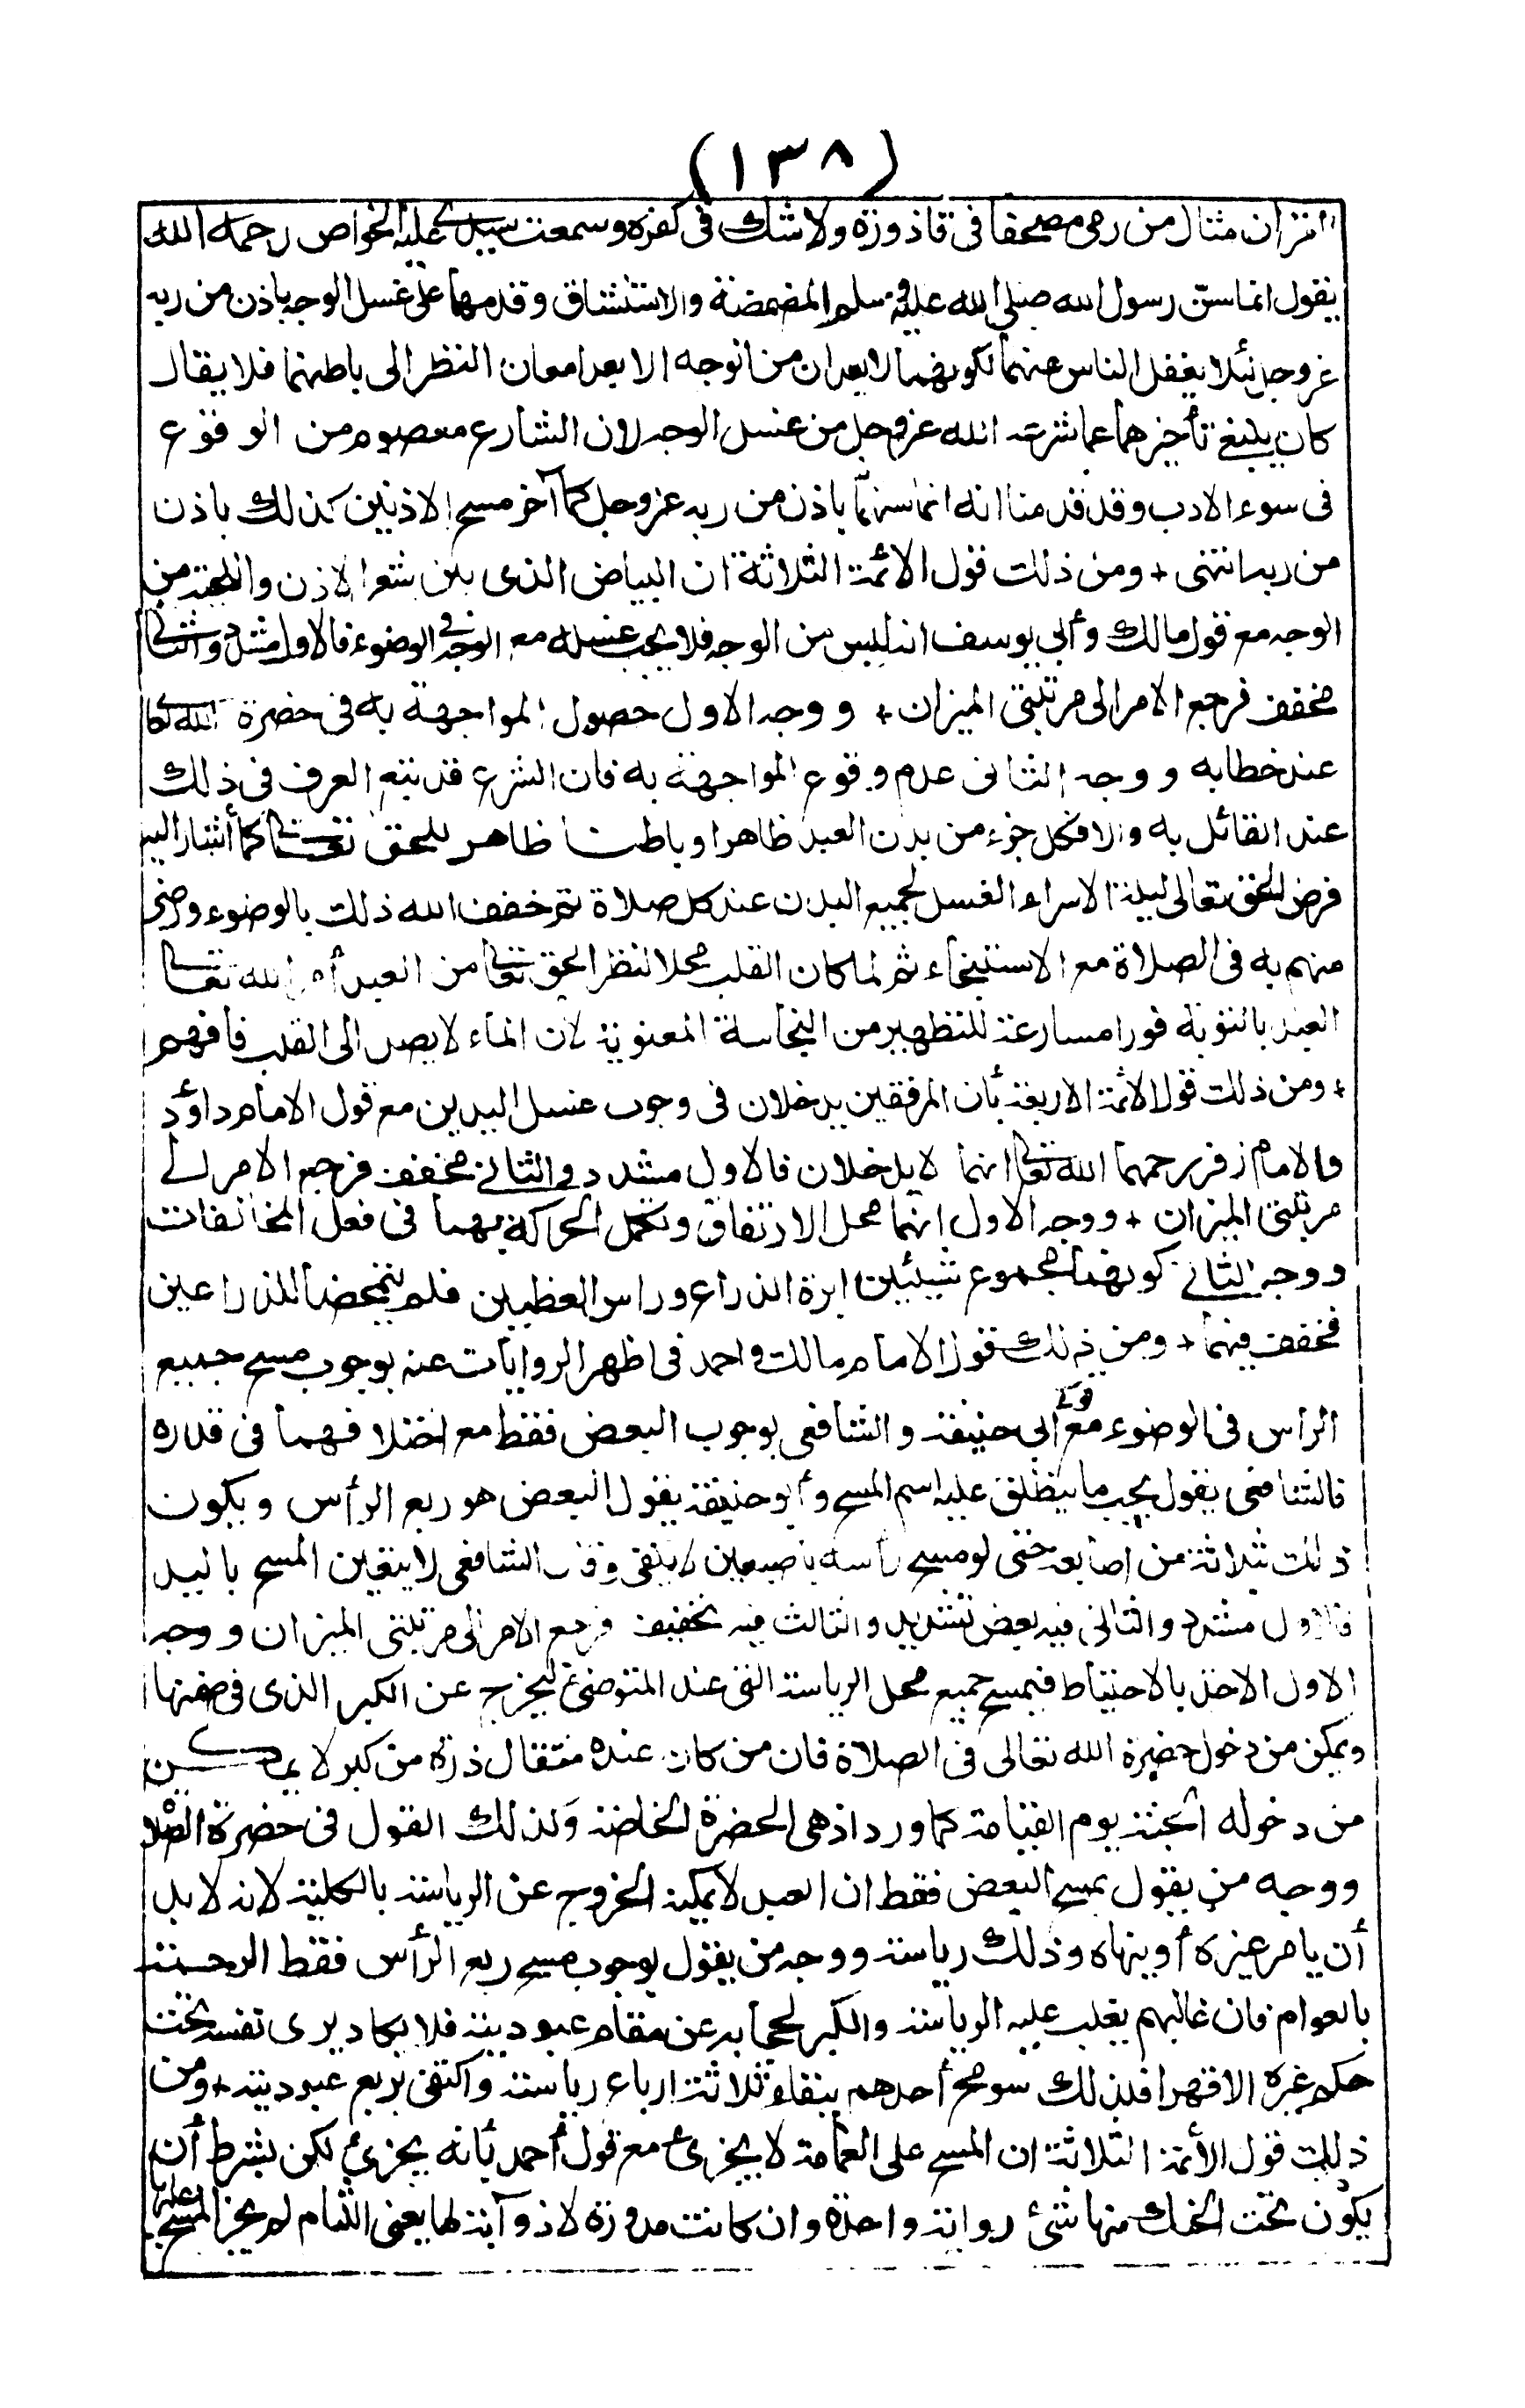 (١٣٨)
القرآن مثال من رمى مصحفا فى قاذورة ولا شك فى كفره وسمعت سيدى عليا الخواص رحمه الله
يقول انما سنّ رسول الله صلى الله عليه وسلم المضمضة والاستنشاق وقدمهما على غسل الوجه باذن من ربه
عز وجل لئلا يغفل الناس عنهما لكونهما لا يعدان من الوجه الا بعد امعان النظر الى باطنهما فلا يقال
كان ينبغى تأخيرهما عما شرعه الله عز وجل من غسل الوجه لان الشارع معصوم من الوقوع
فى سوء الادب وقد قدمنا انه انما سنهما باذن من ربه عز وجل كما أخر مسح الاذنين كذلك باذن
من ربه انتهى + ومن ذلك قول الائمة الثلاثة ان البياض الذى بين شعر الاذن واللحية من
الوجه مع قول مالك وأبى يوسف انه ليس من الوجه فلا يجب غسله مع الوجه فى الوضوء فالاول مشدد والثانى
مخفف فرجع الامر الى مرتبتى الميزان + ووجه الاول حصول المواجهة به فى حضرة الله تعالى
عند خطابه ووجه الثانى عدم وقوع المواجهة به فان الشرع قد يتبع العرف فى ذلك
عند القائل به والا فكل جزء من بدن العبد ظاهرا وباطنا ظاهر للحق تعالى كما أشار اليه
فرض الحق تعالى ليلة الاسراء الغسل لجميع البدن عند كل صلاة ثم خفف الله ذلك بالوضوء ورضى
منهم به فى الصلاة مع الاستنجاء ثم لما كان القلب محلا لنظر الحق تعالى من العبد أمر الله تعالى
العبد بالتوبة فورا مسارعة للتطهير من النجاسة المعنوية لان الماء لا يصل الى القلب فافهم
+ ومن ذلك قول الائمة الاربعة بأن المرفقين يدخلان فى وجوب غسل اليدين مع قول الامام داؤد
والامام زفر رحمهما الله تعالى انهما لا يدخلان فالاول مشدد والثانى مخفف فرجع الامر الى
مرتبتى الميزان + ووجه الاول انهما محل الارتفاق وتكمل الحركة بهما فى فعل المخالفات
ووجه الثانى كونهما مجموع شيئين ابرة الذراع وراس العظمين فلم يتمحضا للذراعين
فخفف فيهما + ومن ذلك قول الامام مالك واحمد فى اظهر الروايات عنه بوجوب مسح جميع
الرأس فى الوضوء مع قول ابى حنيفة والشافعى بوجوب البعض فقط مع اختلافهما فى قدره
فالشافعى يقول يجب ما ينطلق عليه اسم المسح وأبو حنيفة يقول البعض هو ربع الرأس ويكون
ذلك بثلاثة من اصابعه حتى لو مسح رأسه باصبعين لا يكفى وقال الشافعى لا يتعين المسح باليد
فالاول مشدد والثانى فيه بعض تشديد والثالث فيه تخفيف فرجع الامر الى مرتبتى الميزان ووجه
الاول الاخذ بالاحتياط فيمسح جميع محل الرياسة التى عند المتوضئ ليخرج عن الكبر الذى فى ضمنها
ويمكن من دخول حضرة الله تعالى فى الصلاة فان من كان عنده مثقال ذرة من كبر لا يمكن
من دخوله الجنة يوم القيامة كما ورد اذ هى الحضرة الخاصة وكذلك القول فى حضرة الصلاة
ووجه من يقول بمسح البعض فقط ان العبد لا يمكنه الخروج عن الرياسة بالكلية لانه لا بد
أن يامر غيره أو ينهاه وذلك رياسة ووجه من يقول بوجوب مسح ربع الرأس فقط الرحمة
بالعوام فان غالبهم يغلب عليه الرياسة والكبر لحجابه عن مقام عبوديته فلا يكاد يرى نفسه تحت
حكم غيره الا قهرا فلذلك سومح أحدهم ببقاء ثلاثة ارباع رياسته واكتفى بربع عبوديته + ومن
ذلك قول الأئمة الثلاثة ان المسح على العمامة لا يجزئ مع قول أحمد بأنه يجزئ لكن بشرط أن
يكون تحت الحنك منها شئ رواية واحدة وان كانت مدورة لا ذوآبة لها يعنى اللثام لم يجز المسح عليها